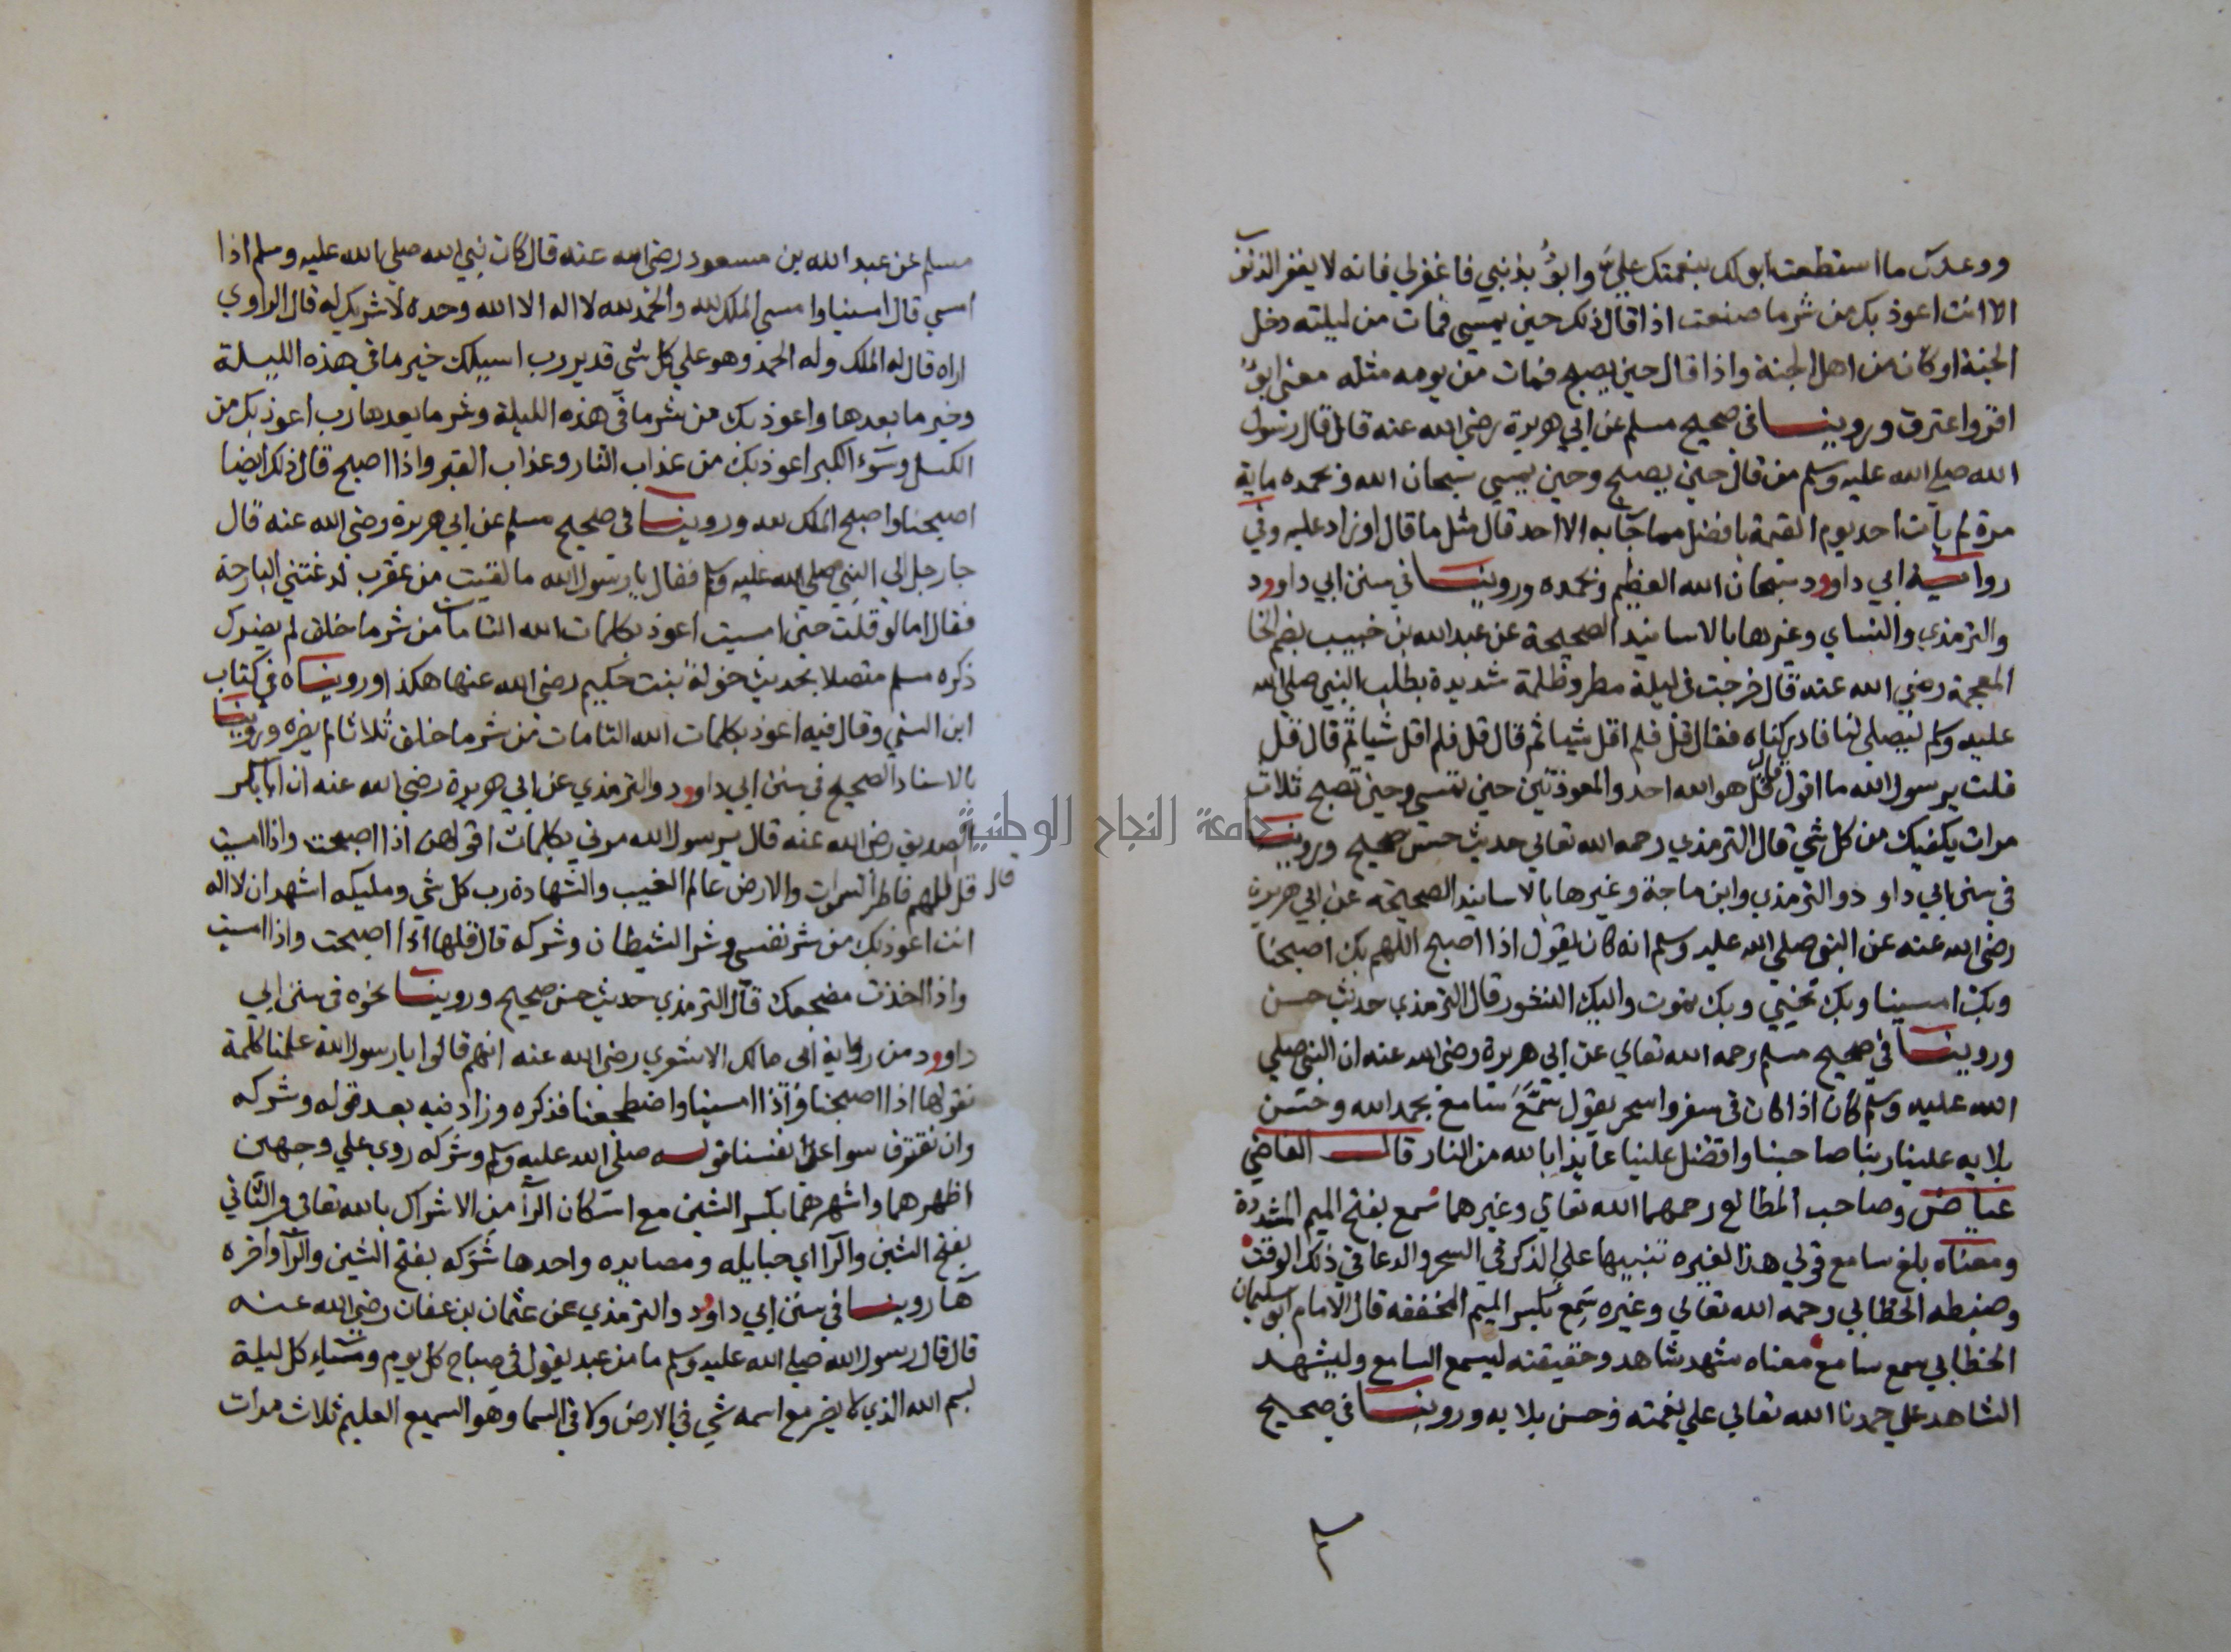 ووعدك ما استطعت ابولك بنعمتك علي وابؤ بذنبي فاغفرلي فانه لا يغفر الذنوب
الا انت اعوذ بك من شر ما صنعت اذا قال ذلك حين يمسي فمات من ليلته دخل
الجنة او كان من اهل الجنة واذا قال حين يصبح فمات من يومه مثله معني ابؤ
اقر واعترف وروينا في صحيح مسلم عن ابي هريرة رضي الله عنه قال قال رسول
الله صلي الله عليه وسلم من قال حين يصبح وحين يمسي سبحان الله وبحمده ماية
مرة لم يات احد يوم القيمة بافضل مما جا به الا احد قال مثل ما قال او زاد عليه وفي
رواية ابي داوود سبحان الله العظيم وبحمده وروينا في سنن ابي داوود
والترمذي والنساي وغيرها بالاسانيد الصحيحة عن عبد الله بن خبيب بضم الخا
المعجمة رضي الله عنه قال خرجت في ليلة مطر وظلمة شديدة بطلب النبي صلي الله
عليه وسلم ليصلي لنا فادركناه فقال قل فلم اقل شيا ثم قال قل فلم اقل شيا ثم قال قل
قلت يرسول الله ما اقول قال قل هو الله احد والمعوذتين حين تمسي وحين تصبح ثلاث
مرات يكفيك من كل شي قال الترمذي رحمه الله تعالي حديث حسن صحيح وروينا
في سنن ابي داود والترمذي وابن ماجة وغيرها بالاسانيد الصحيحة عن ابي هريرة
رضي الله عنه عن النبي صلي الله عليه وسلم انه كان يقول اذا اصبح اللهم بك اصبحنا
وبك امسينا وبك نحيي وبك نموت واليك النشور قال الترمذي حديث حسن
وروينا في صحيح مسلم رحمه الله تعالي عن ابي هريرة رضي الله عنه ان النبي صلي
الله عليه وسلم كان اذا كان في سفر واسحر يقول سمع سامع بحمد الله وحسن
بلايه علينا ربنا صاحبنا وافضل علينا عايذا بالله من النار قال القاضي
عياض وصاحب المطالع رحمهما الله تعالي وغيرهما سمع بفتح الميم المشددة
ومعناه بلغ سامع قولي هذا لغيره تنبيها علي الذكر في السحر والدعا في ذلك الوقت
وضبطه الخطابي رحمه الله تعالي وغيره سمع بكسر الميم المخففه قال الامام ابو سليمان
الخطابي سمع سامع معناه شهد شاهد وحقيقته ليسمع السامع وليشهد
الشاهد علي حمدنا الله تعالي علي نعمته وحسن بلايه وروينا في صحيح
مسلم
مسلم عن عبد الله بن مسعود رضي الله عنه قال كان نبي الله صلي الله عليه وسلم اذا
امسي قال امسينا وامسي الملك لله والحمد لله لا اله الا الله وحده لا شريك له قال الراوي
اراه قال له الملك وله الحمد وهو علي كل شي قدير رب اسيلك خير ما في هذه الليلة
وخير ما بعدها واعوذ بك من شر ما في هذه الليلة وشر ما بعدها رب اعوذ بك من
الكسل وسوء الكبر اعوذ بك من عذاب النار وعذاب القبر واذا اصبح قال ذلك ايضا
اصبحنا واصبح الملك لله وروينا في صحيح مسلم عن ابي هريرة رضي الله عنه قال
جا رجل الي النبي صلي الله عليه وسلم فقال يا رسول الله ما لقيت من عقرب لدغتني البارحة
فقال اما لو قلت حين امسيت اعوذ بكلمات الله التامات من شر ما خلق لم يضرك
ذكره مسلم متصلا بحديث خولة بنت حكيم رضي الله عنها هكذا ورويناه في كتاب
ابن السني وقال فيه اعوذ بكلمات الله التامات من شر ما خلق ثلاثا لم يضره وروينا
بالاسناد الصحيح في سنن ابي داوود والترمذي عن ابي هريرة رضي الله عنه ان ابا بكر
الصديق رضي الله عنه قال يرسول الله مرني بكلمات اقولهن اذا اصبحت واذا امسيت
قال قل اللهم فاطر السموات والارض عالم الغيب والشهادة رب كل شي ومليكه اشهد ان لا اله
انت اعوذ بك من شر نفسي وشر الشيطان وشركه قال قلها اذا اصبحت واذا امسيت
واذا اخذت مضجعك قال الترمذي حديث حسن صحيح وروينا نحوه في سنن ابي
داوود من رواية ابي مالك الاشعري رضي الله عنه انهم قالوا يا رسول الله علمنا كلمة
نقولها اذا اصبحنا واذا امسينا واضطجعنا فذكره وزاد فيه بعد قوله وشركه
وان نقترف سوا علي انفسنا قوله صلي الله عليه وسلم وشركه روي علي وجهين
اظهرهما واشهرهما بكسر الشين مع اسكان الرآ من الاشراك بالله تعالي والثاني
بفتح الشين والرآ اي حبايله ومصايده واحدها شركه بفتح الشين والرآ واخره
هآ روينا في سنن ابي داوود والترمذي عن عثمان بن عفان رضي الله عنه
قال قال رسول الله صلي الله عليه وسلم ما من عبد يقول في صباح كل يوم ومساء كل ليلة
بسم الله الذي لا يضر مع اسمه شي في الارض ولا في السما وهو السميع العليم ثلاث مرات
جامعة النجاح الوطنية